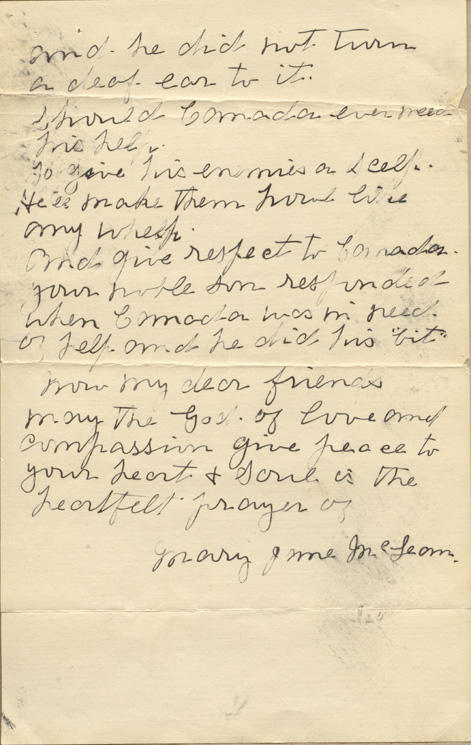 and he did not turn
a deaf ear to it.
Should Canada ever need
his help.
To give his enemies a scelp.
He'll make them howl like
any whelp.
And give respect to Canada.
your noble son responded
when Canada was in need.
of help and he did his "bit"
now my dear friends
may the God of love and
compassion give peace to
your heart & soul is the
heartfelt prayer of
Mary Jane McLean.